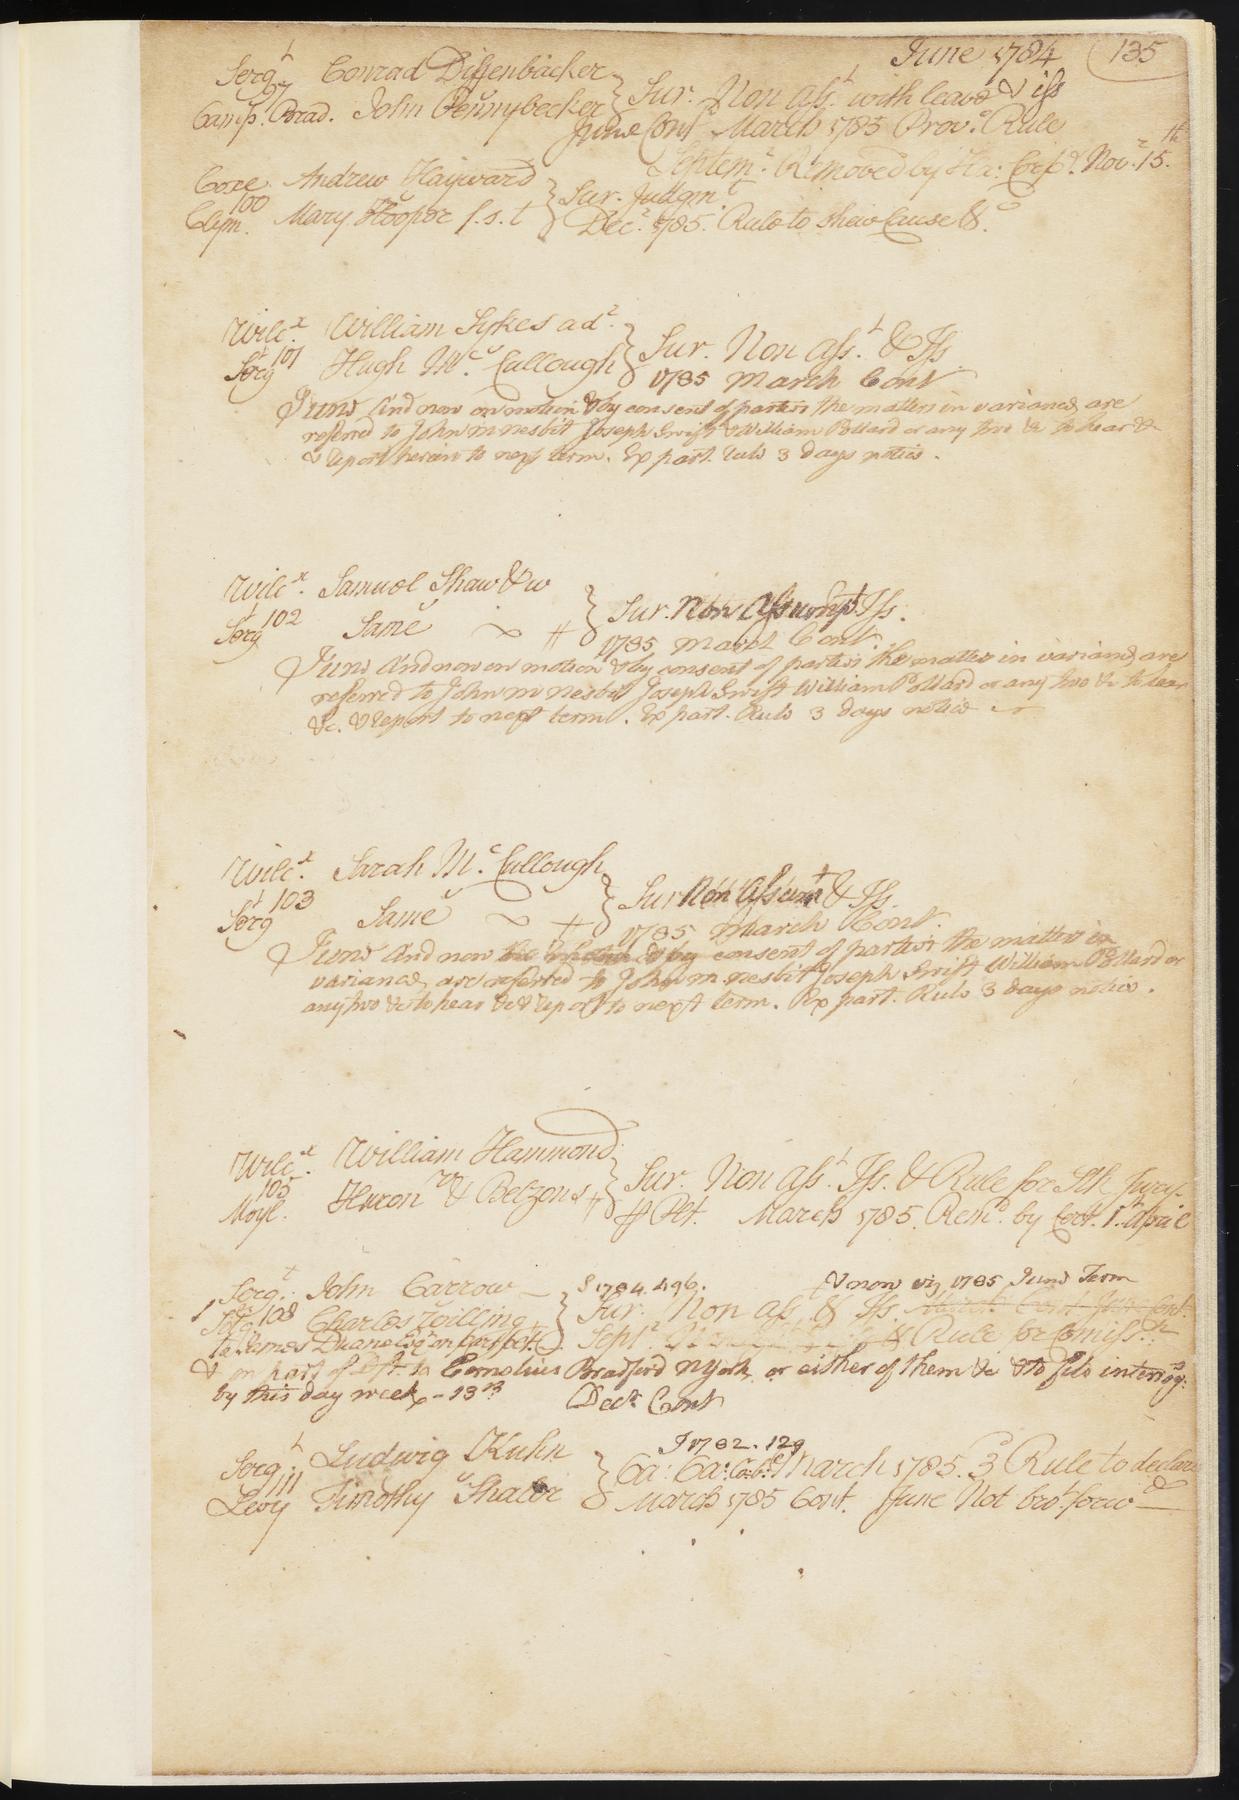 June 1784 135
Sergt Conrad Diffenbácker
97
Camp. Brad. John Pennybecker } Sur. Non Asst. with leave & iss
June Cont March 1785 Prov.o Rule
Septemr. Removed by Ha: Corps. Novr. 15.th
Coxe. Andrew Hayward
100
Clym. Mary Hooper f.s.t } Sur. Judgm.t
Decr. 1785. Rule to shew Cause &c.
Wilcx. William Sykes adr.
101
Sergt Hugh Mc. Cullough } Sur. Non Asst. & Iss
1785 March Cont
June And now on motion & by consent of parties the matters in variance are
referred to John m nesbit Joseph Swift & William Pollard or any two &c to hear &c
& report herein to next term. Ex part. rule 3 days notice.
Wilcx. Samuel Shaw & w
102
Sergt Same } Sur. Non Assumpt Iss.
1785 March Cont.
June And now on motion & by consent of parties the matters in variance are
referred to John m nesbit Joseph Swift William Pollard or any two &c to hear
&c. & report to next term. Ex part. Rule 3 days notice
Wilcx. Sarah Mc. Cullough
103
Sergt Same } Sur Non Assumt & Iss.
1785 March Cont.
June And now on motion & by consent of parties the matters in
variance, are referred to John m. nesbit Joseph Swift William Pollard or
any two &c to hear &c & report to next term. Ex part. Rule 3 days notice.
Wilcx. William Hammond
105
Moyl. Huron & Betzons } Sur. Non Asst. Iss. & Rule for Sth Jury
Plt. March 1785. Remd. by Cert. 1st. April
Sergt. John Carrow S 1784. 496. & now viz 1785 June Term
108 Charles Willing } Sur. Non Ass & Iss.
to James Duane Esqr on part pltf Septr & Rule for Comiss.n
& on part of Dft. to Cornelius Bradford N York, or either of them &c & to file interrogs
by this day week - 13
Decr. Cont
Sergt. Ludwig Kuhn J 1782. 129
111
Levy Timothy Shaler } Ca: Ca: March 1785. 3 Rule to declare
March 1785 Cont. June Not brot. forwd